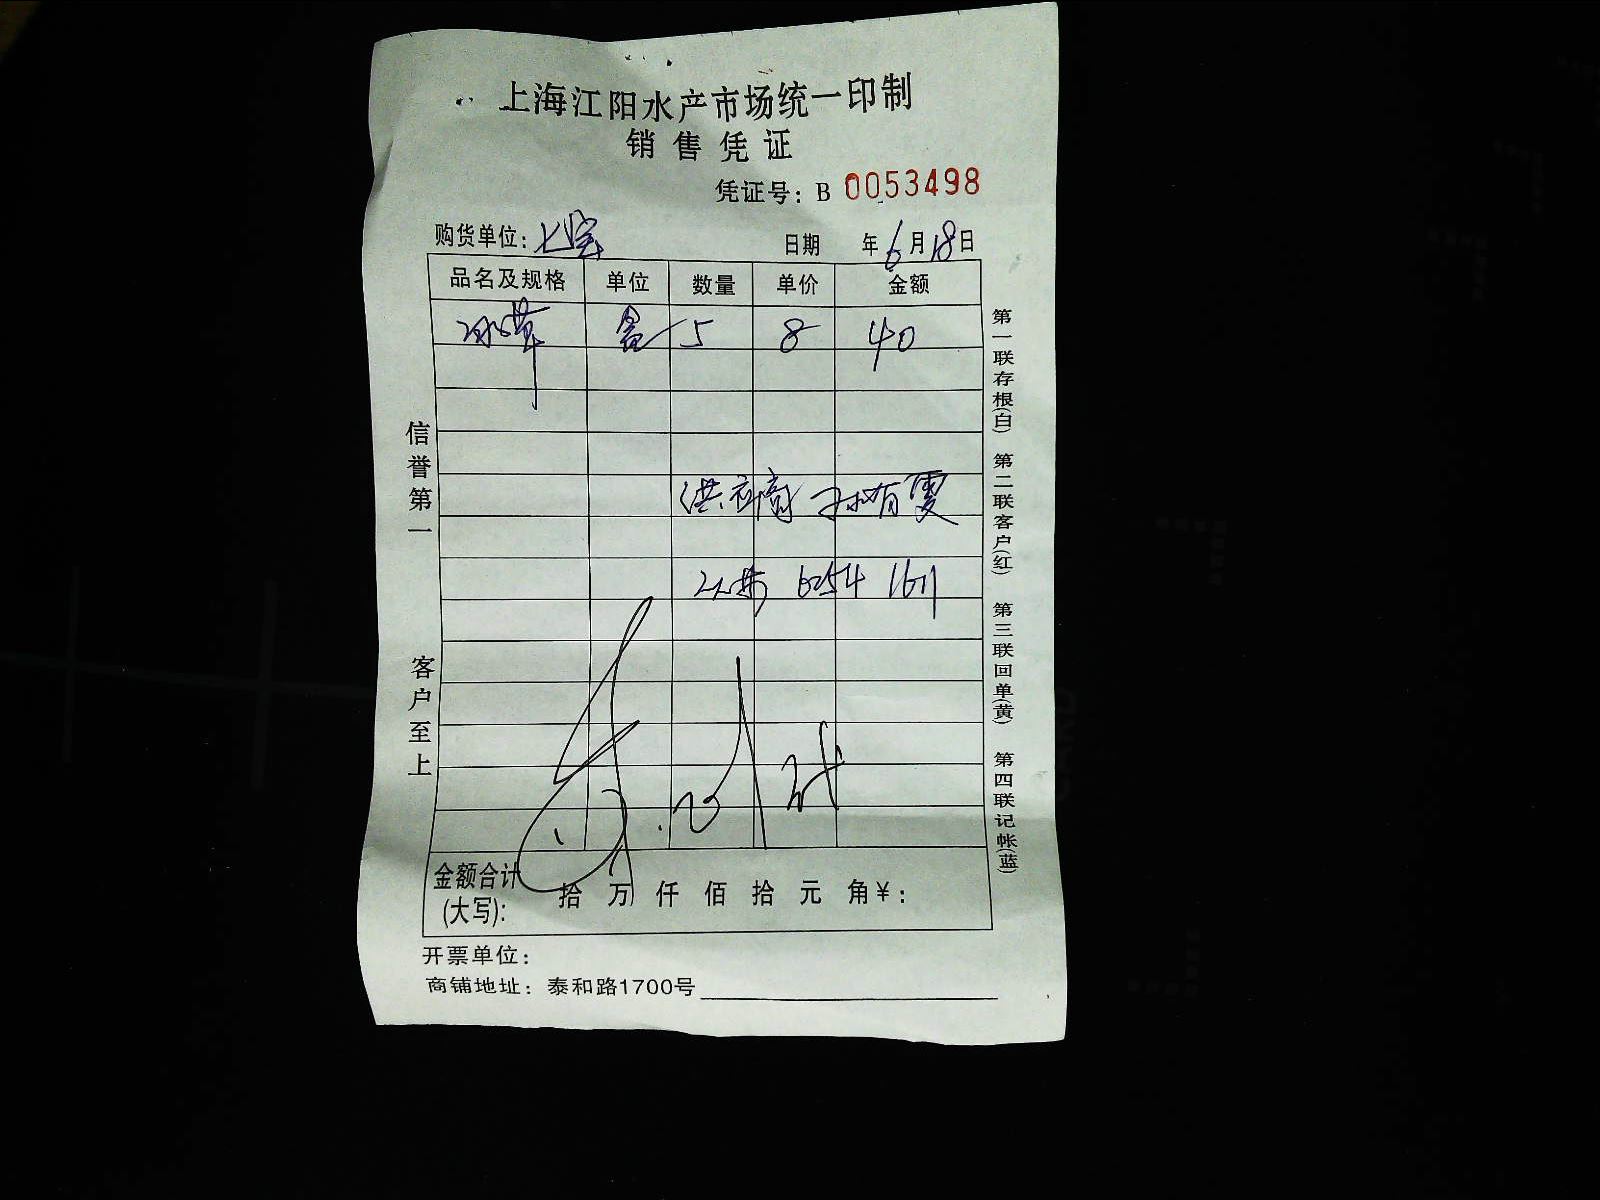 上海江阳水产市场统一印制
销售凭证
凭证号：B 0053498
购货单位：七宝
日期 年6月18日
品名及规格 单位 数量 单价 金额
冰草 盒 5 8 40
洪应商 孙有雯
6254 1611
金额合计(大写)： 拾 万 仟 佰 拾 元 角¥：
开票单位：
商铺地址：泰和路1700号
信誉第一
客户至上
第一联存根(白) 第二联客户(红) 第三联回单(黄) 第四联记帐(蓝)